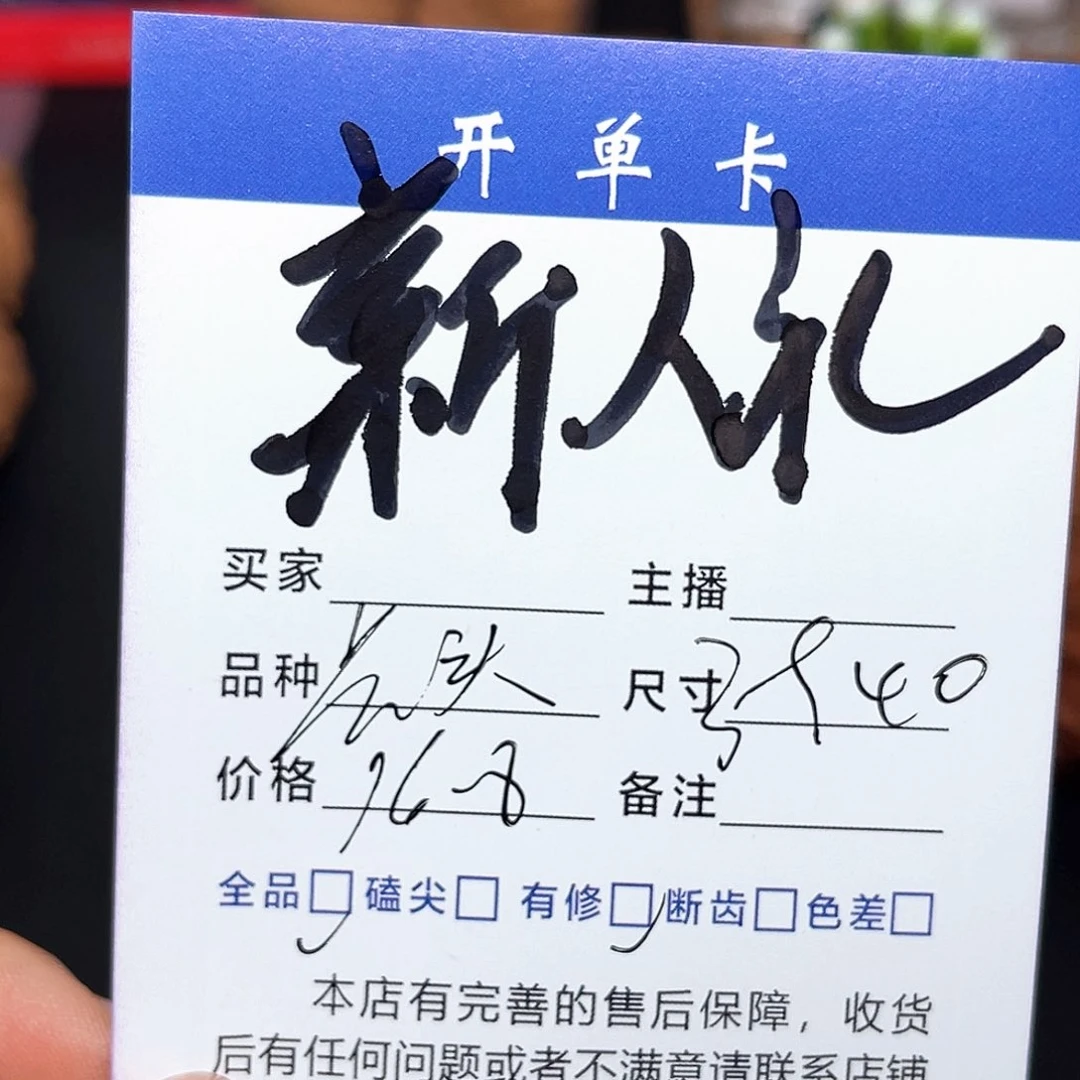 开单卡
新人礼
买家 主播
品种 尺寸 40
价格 968 备注
全品□ 磕尖□ 有修□ 断齿□ 色差□
本店有完善的售后保障，收货
后有任何问题或者不满意请联系店铺